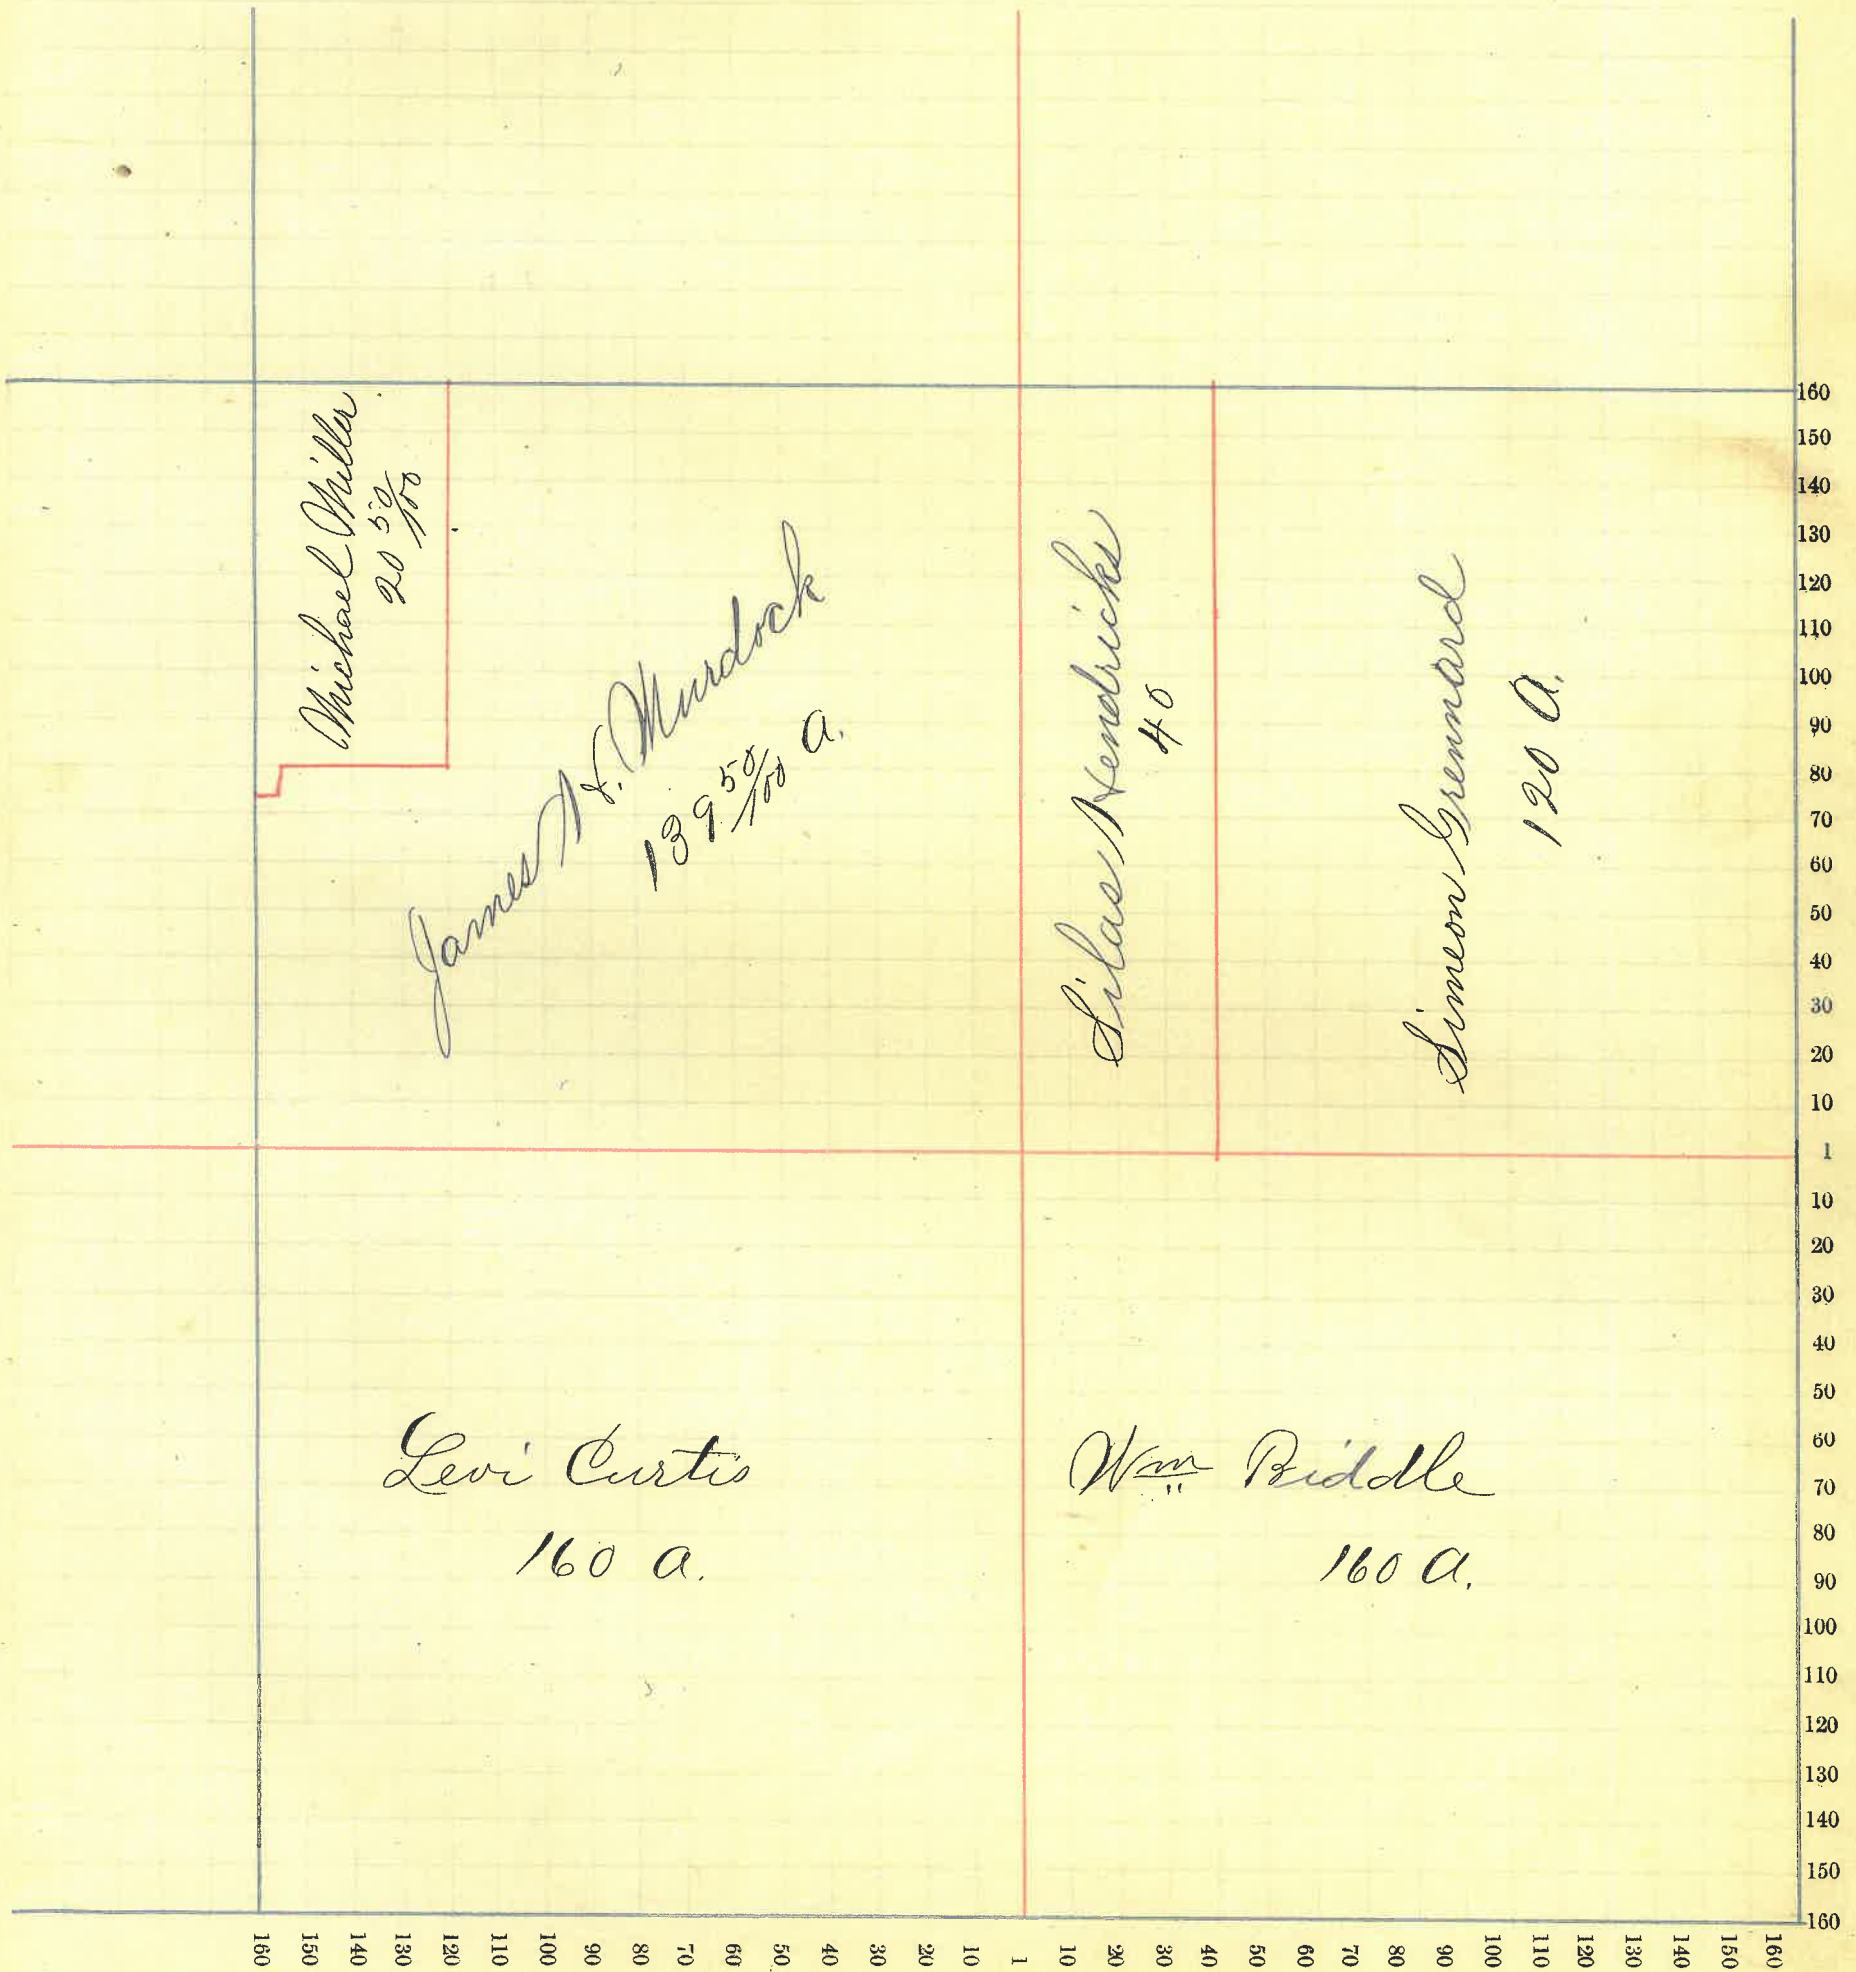 Michael Miller
20 50/100
James N. S. Murdock
139 50/100 A.
Silas Hendricks
40
Simeon Grennard
120 A.
Levi Curtis
160 A.
Wm Biddle
160 A.
160
150
140
130
120
110
100
90
80
70
60
50
40
30
20
10
1
10
20
30
40
50
60
70
80
90
100
110
120
130
140
150
160
160 150 140 130 120 110 100 90 80 70 60 50 40 30 20 10 1 10 20 30 40 50 60 70 80 90 100 110 120 130 140 150 160